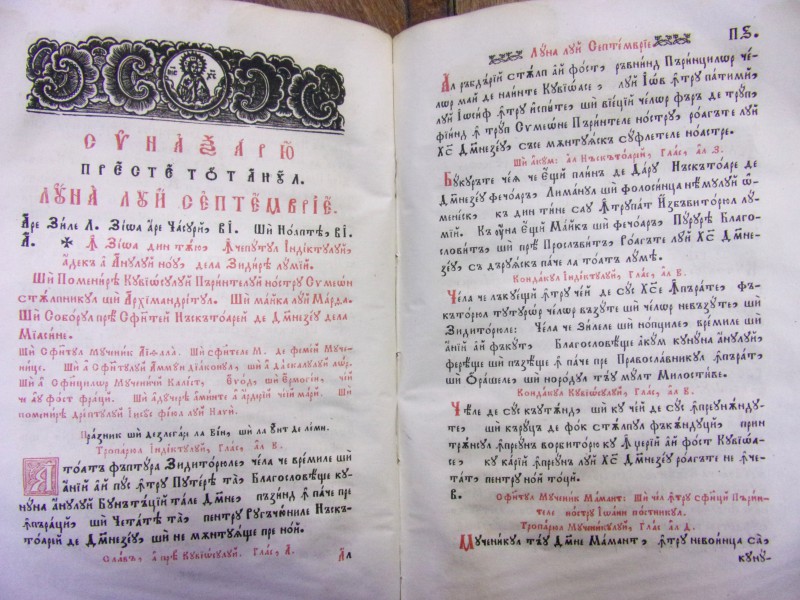 СѴНАѮАРЮ
ПРЕСТЕ ТОТ АНУЛ.
ЛУНА ЛУЙ СЕПТЕМВРІЕ.
Аре Зиле Л. Зіѡа аре Часурй, ВІ. Шй Ноаптѣ, ВІ.
А. ✠ Ꙟ Зіѡа дин тѫю, Ꙟчепутул Індіктулуй,
адекъ а Анулуй ноу, дела Зидирѣ лумій.
Шй Поменирѣ Кувіѡсулуй Пъринтелуй ностру Сѵмеѡн
стѫлпникул шй Архімандритул. Шй Майка луй Марѳа.
Шй Соборул прѣ Сфинтей Нъскътоарей де Дмнезеу дела
Міасіне.
Шй Сфѫнтул Мученик Аіѳала. Шй сфинтеле М. де фемей Муче-
нице. Шй а Сфѫнтулуй Аммун діаконул, шй а даскалулуй лѡр.
Шй а Сфинцилѡр Мученичй Каліст, Евод, шй Ермоген, чей
че ау фост фрацй. Шй адучерѣ аминте а ардерій чей марй. Шй
поменирѣ дрептулуй Іисус фіюл луй Наѵи.
Празник шй дезлегаре ла вин, шй ла унт де лемн.
Тропарюл Індіктулуй, Глас, ал В.
А тоатъ фъптура Зидиторюле, чела че времиле шй
анй ай пус ꙟтру Путерѣ та, Благословеще ку-
нуна анулуй Бунътъцій тале Дмне, пъзинд ꙟ паче пре
ꙟпърацй, шй Четатѣ та, пентру Ругъчюниле Нъскъ-
тоарей де Дмнезеу, шй не мѫнтуяще пре ной.
Славъ, а прѣ Кувіѡсулуй. Глас, А.
Ал
Луна луй Септемвріе
ПЅ.
Ал ръбдърій стѫлп ай фост, рѫвнинд Пъринцилѡр че-
лѡр май де наинте Кувіѡасе, луй Іѡв ꙟтру патимй,
луй Іѡсиф ꙟтру испите, шй віецій челѡр фъръ де труп,
фіинд ꙟ труп Сѵмеѡне Пъринтеле ностру, роагъте луй
ХС Дмнезеу, съсе мѫнтуяскъ суфлетеле ноастре.
Шй акум: ал Нъскътоарій, Глас, ал З.
Букуръте чѣя че ещй плинъ де дару Нъскътоаре де
Дмнезеу фечоаръ, Лиманул шй фолосинца нѣмулуй ѡ-
менеск, къ дин тине сау ꙟтрупат Избъвиторюл лу-
мій. Къ уна ещй Майкъ шй фечоаръ, Пурурѣ Благо-
словитъ, шй прѣ Прослъвитъ, Роагъте луй ХС Дмне-
зеу, съ дъруяскъ паче ла тоатъ лумѣ.
Кондакул Індіктулуй, Глас, ал В.
Чела че лъкуещй ꙟтру чей де сус ХСе Ꙟпърате, фъ-
кътоорюл тутурѡр челѡр възуте шй челѡр невъзуте, шй
Зидиторюле: Чела че зилеле шй нопциле, времиле шй
аній ай фъкут, Благословѣще акум кунуна анулуй,
ферѣще шй пъзѣще ꙟ паче пре Православникул ꙟпърат,
шй Ѡрашеле, шй нородул тъу мулт Милостиве.
Кондакул Кувіѡсулуй, Глас, ал В.
Челе де сус къутѫнд, шй ку чей де сус ꙟпреунѫнду-
те, шй каруцъ де фок стѫлпул фъкѫндуцй, прин
трѫнсул ꙟпреунъ ворбиторю ку Ꙟцерій ай фост Кувіѡа-
се, ку карій ꙟпреунъ луй ХС Дмнезеу роагъте не ꙟче-
тат пентру ной тоцй.
В. Сфѫнтул Мученик Мамант: Шй чел ꙟтру сфинцй Пърин-
теле ностру Іѡанн постникул.
Тропарюл Мученикулуй, Глас, ал Д.
Мученикул тъу Дмне Мамант, ꙟтру невоинца са,
куну-